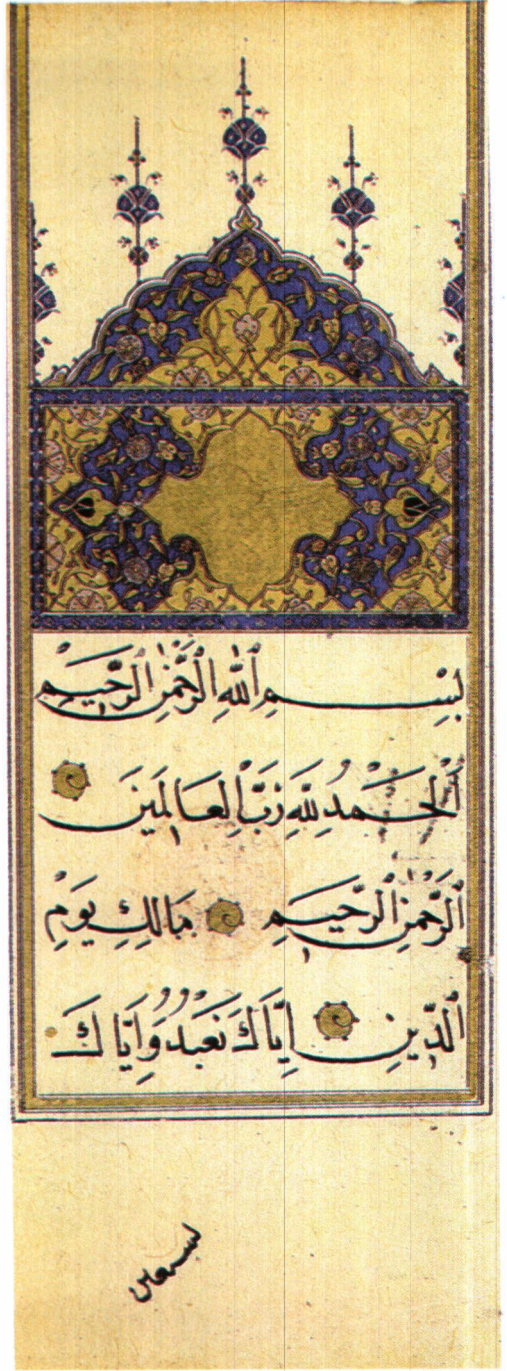 بِسْمِ اللَّهِ الرَّحْمَٰنِ الرَّحِيمِ
اَلْحَمْدُ لِلَّهِ رَبِّ الْعَالَمِينَ
الرَّحْمَٰنِ الرَّحِيمِ مَالِكِ يَوْمِ
الدِّينِ اِيَّاكَ نَعْبُدُ وَاِيَّاكَ
نستعين